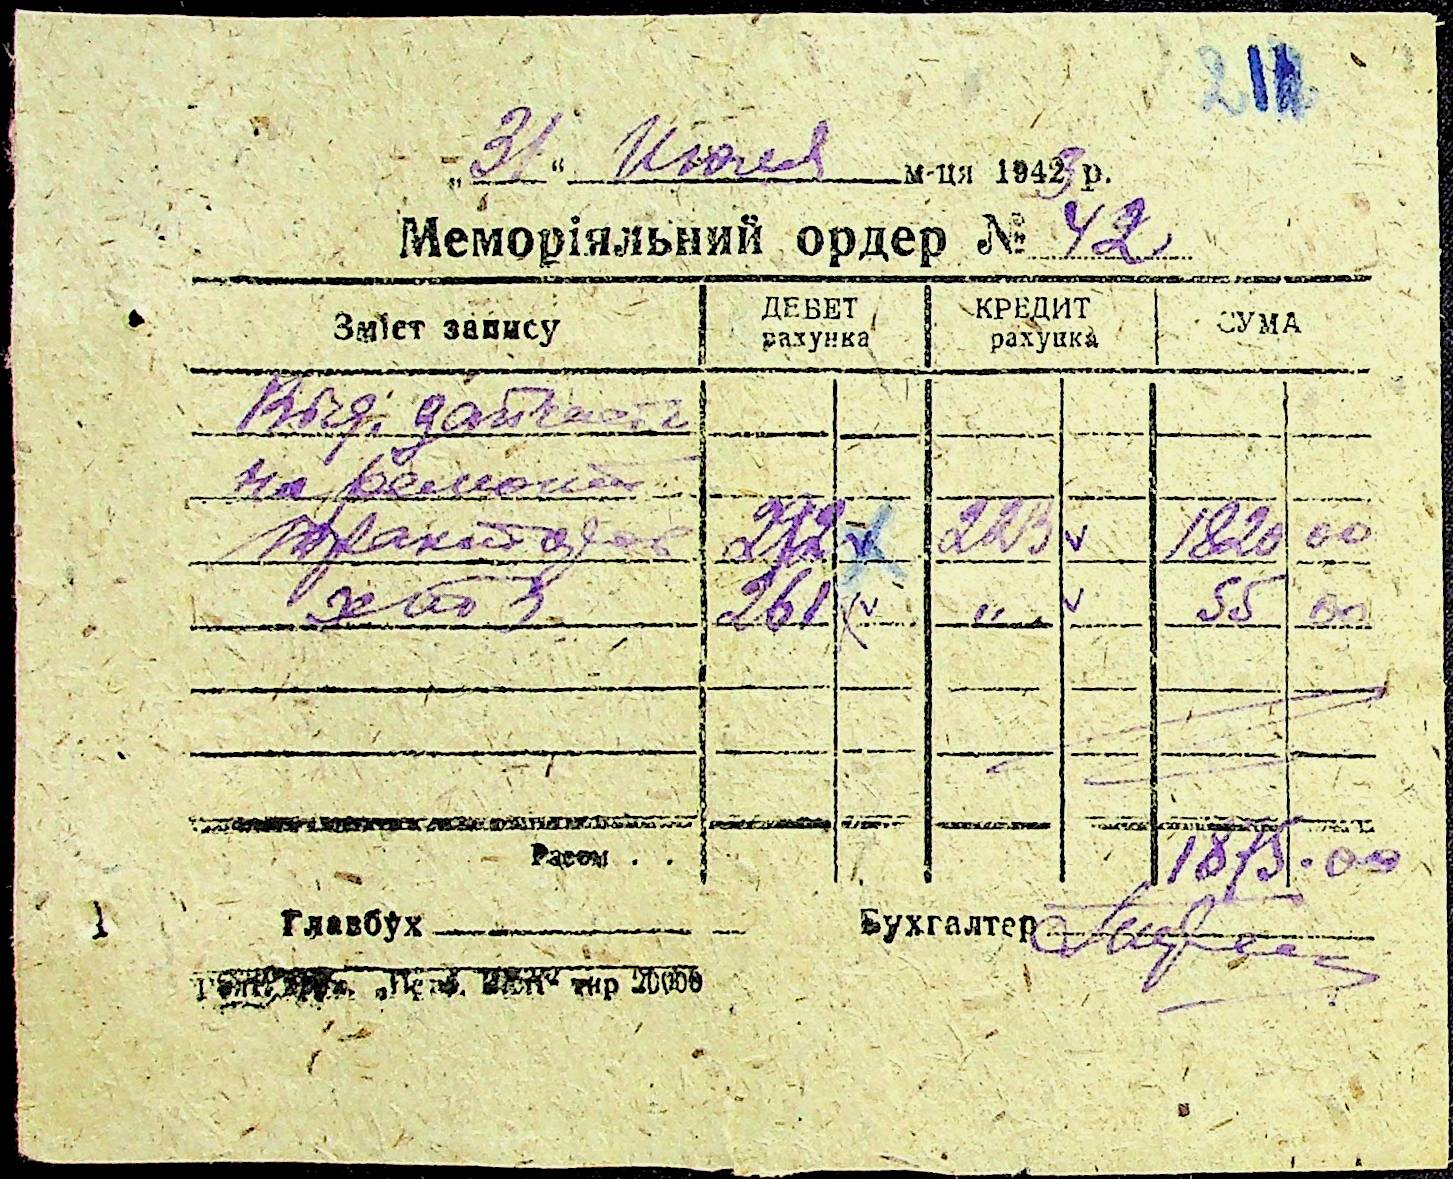 „31“ Июля м-ця 1943 р.
Меморіяльний ордер № 42
Зміст запису ДЕБЕТ рахунка КРЕДИТ рахунка СУМА
Выд. запчасти
на ремонт
тракторов 212 v 223 v 1820 00
261 v " v 55 00
Разом . . 1875.00
1 Главбух Бухгалтер
тир 20000